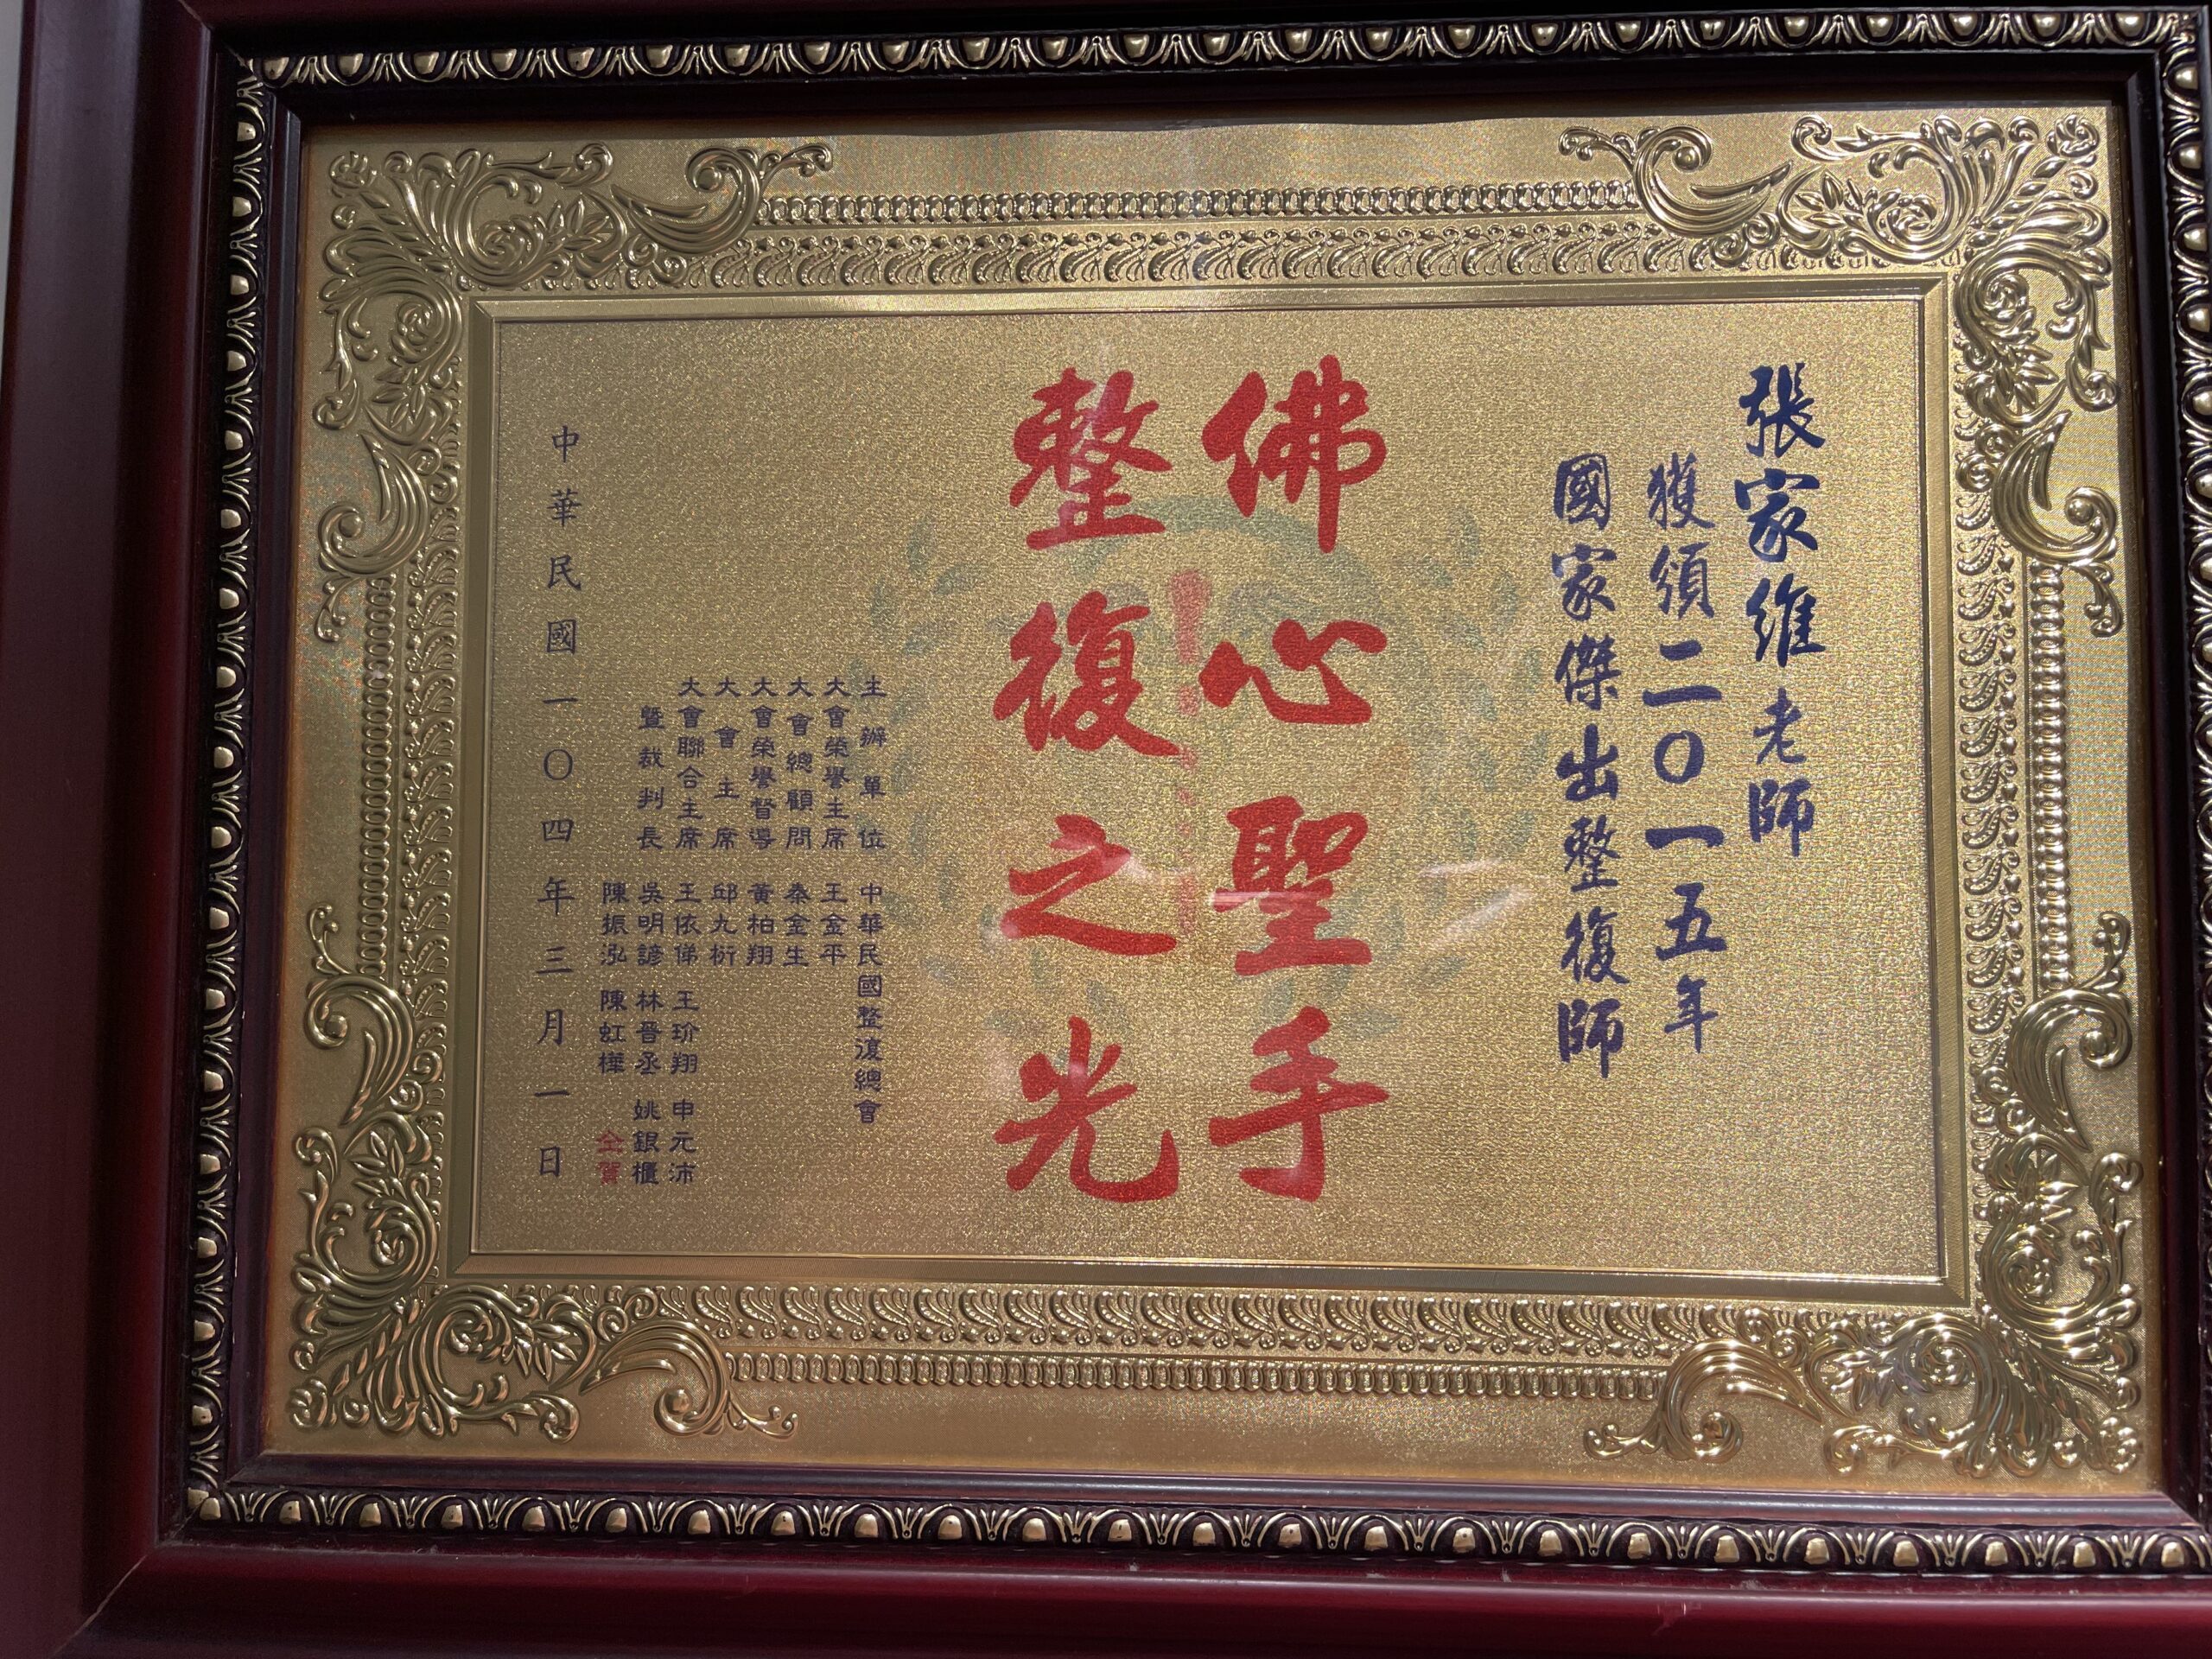 張家維老師
獲頒二〇一五年
國家傑出整復師
佛心聖手
整復之光
主辦單位 中華民國整復總會
大會榮譽主席 王金平
大會總顧問 秦金生
大會榮譽督導 黃柏翔
大會主席 邱九衍
大會聯合主席 王依俤 王玠翔 申元沛
暨裁判長 吳明諺 林晉丞 姚銀櫃
陳振泓 陳虹樺 仝賀
中華民國一〇四年三月一日